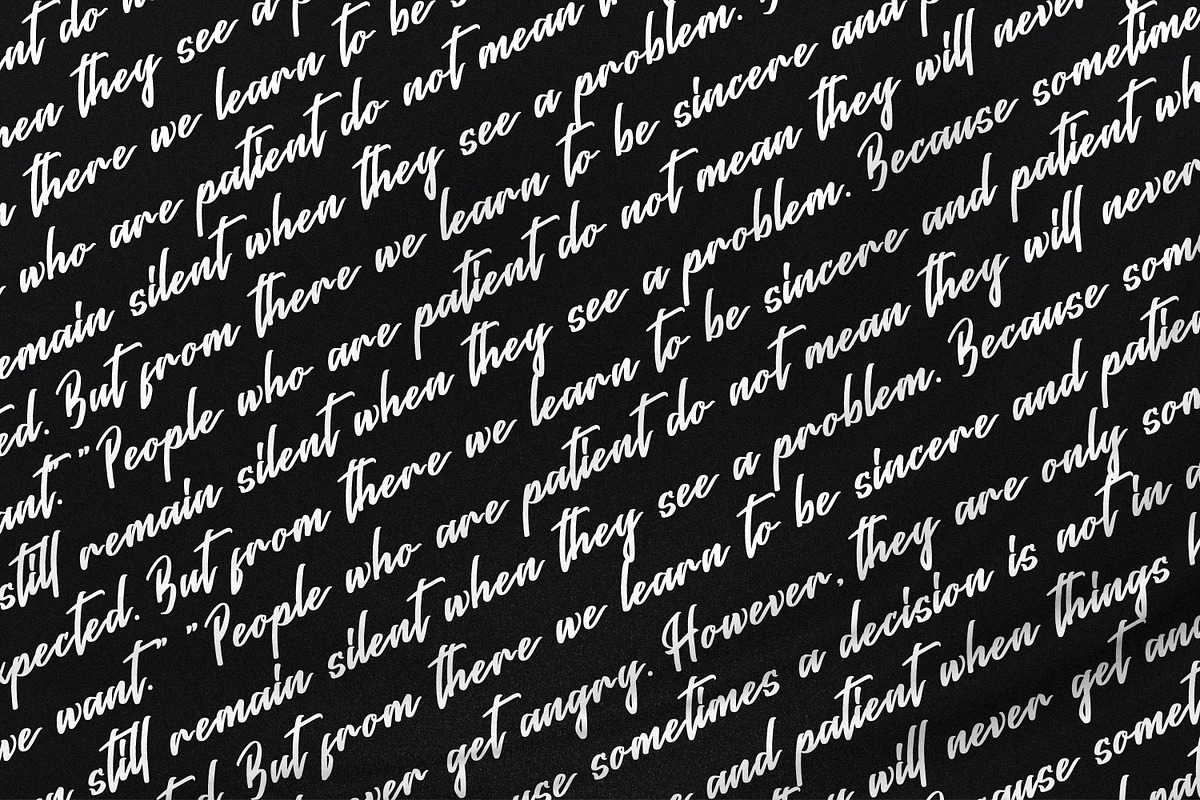 ent do
hen they see a p
n there we learn to be s
who are patient do not mean
emain silent when they see a problem.
ed. But from there we learn to be sincere and p
ant.” ”People who are patient do not mean they will never
still remain silent when they see a problem. Because sometime
xpected. But from there we learn to be sincere and patient wh
we want.” ”People who are patient do not mean they will never
n still remain silent when they see a problem. Because som
ted. But from there we learn to be sincere and patien
ever get angry. However, they are only som
use sometimes a decision is not in a
e and patient when things h
y will never get ang
ecause someti